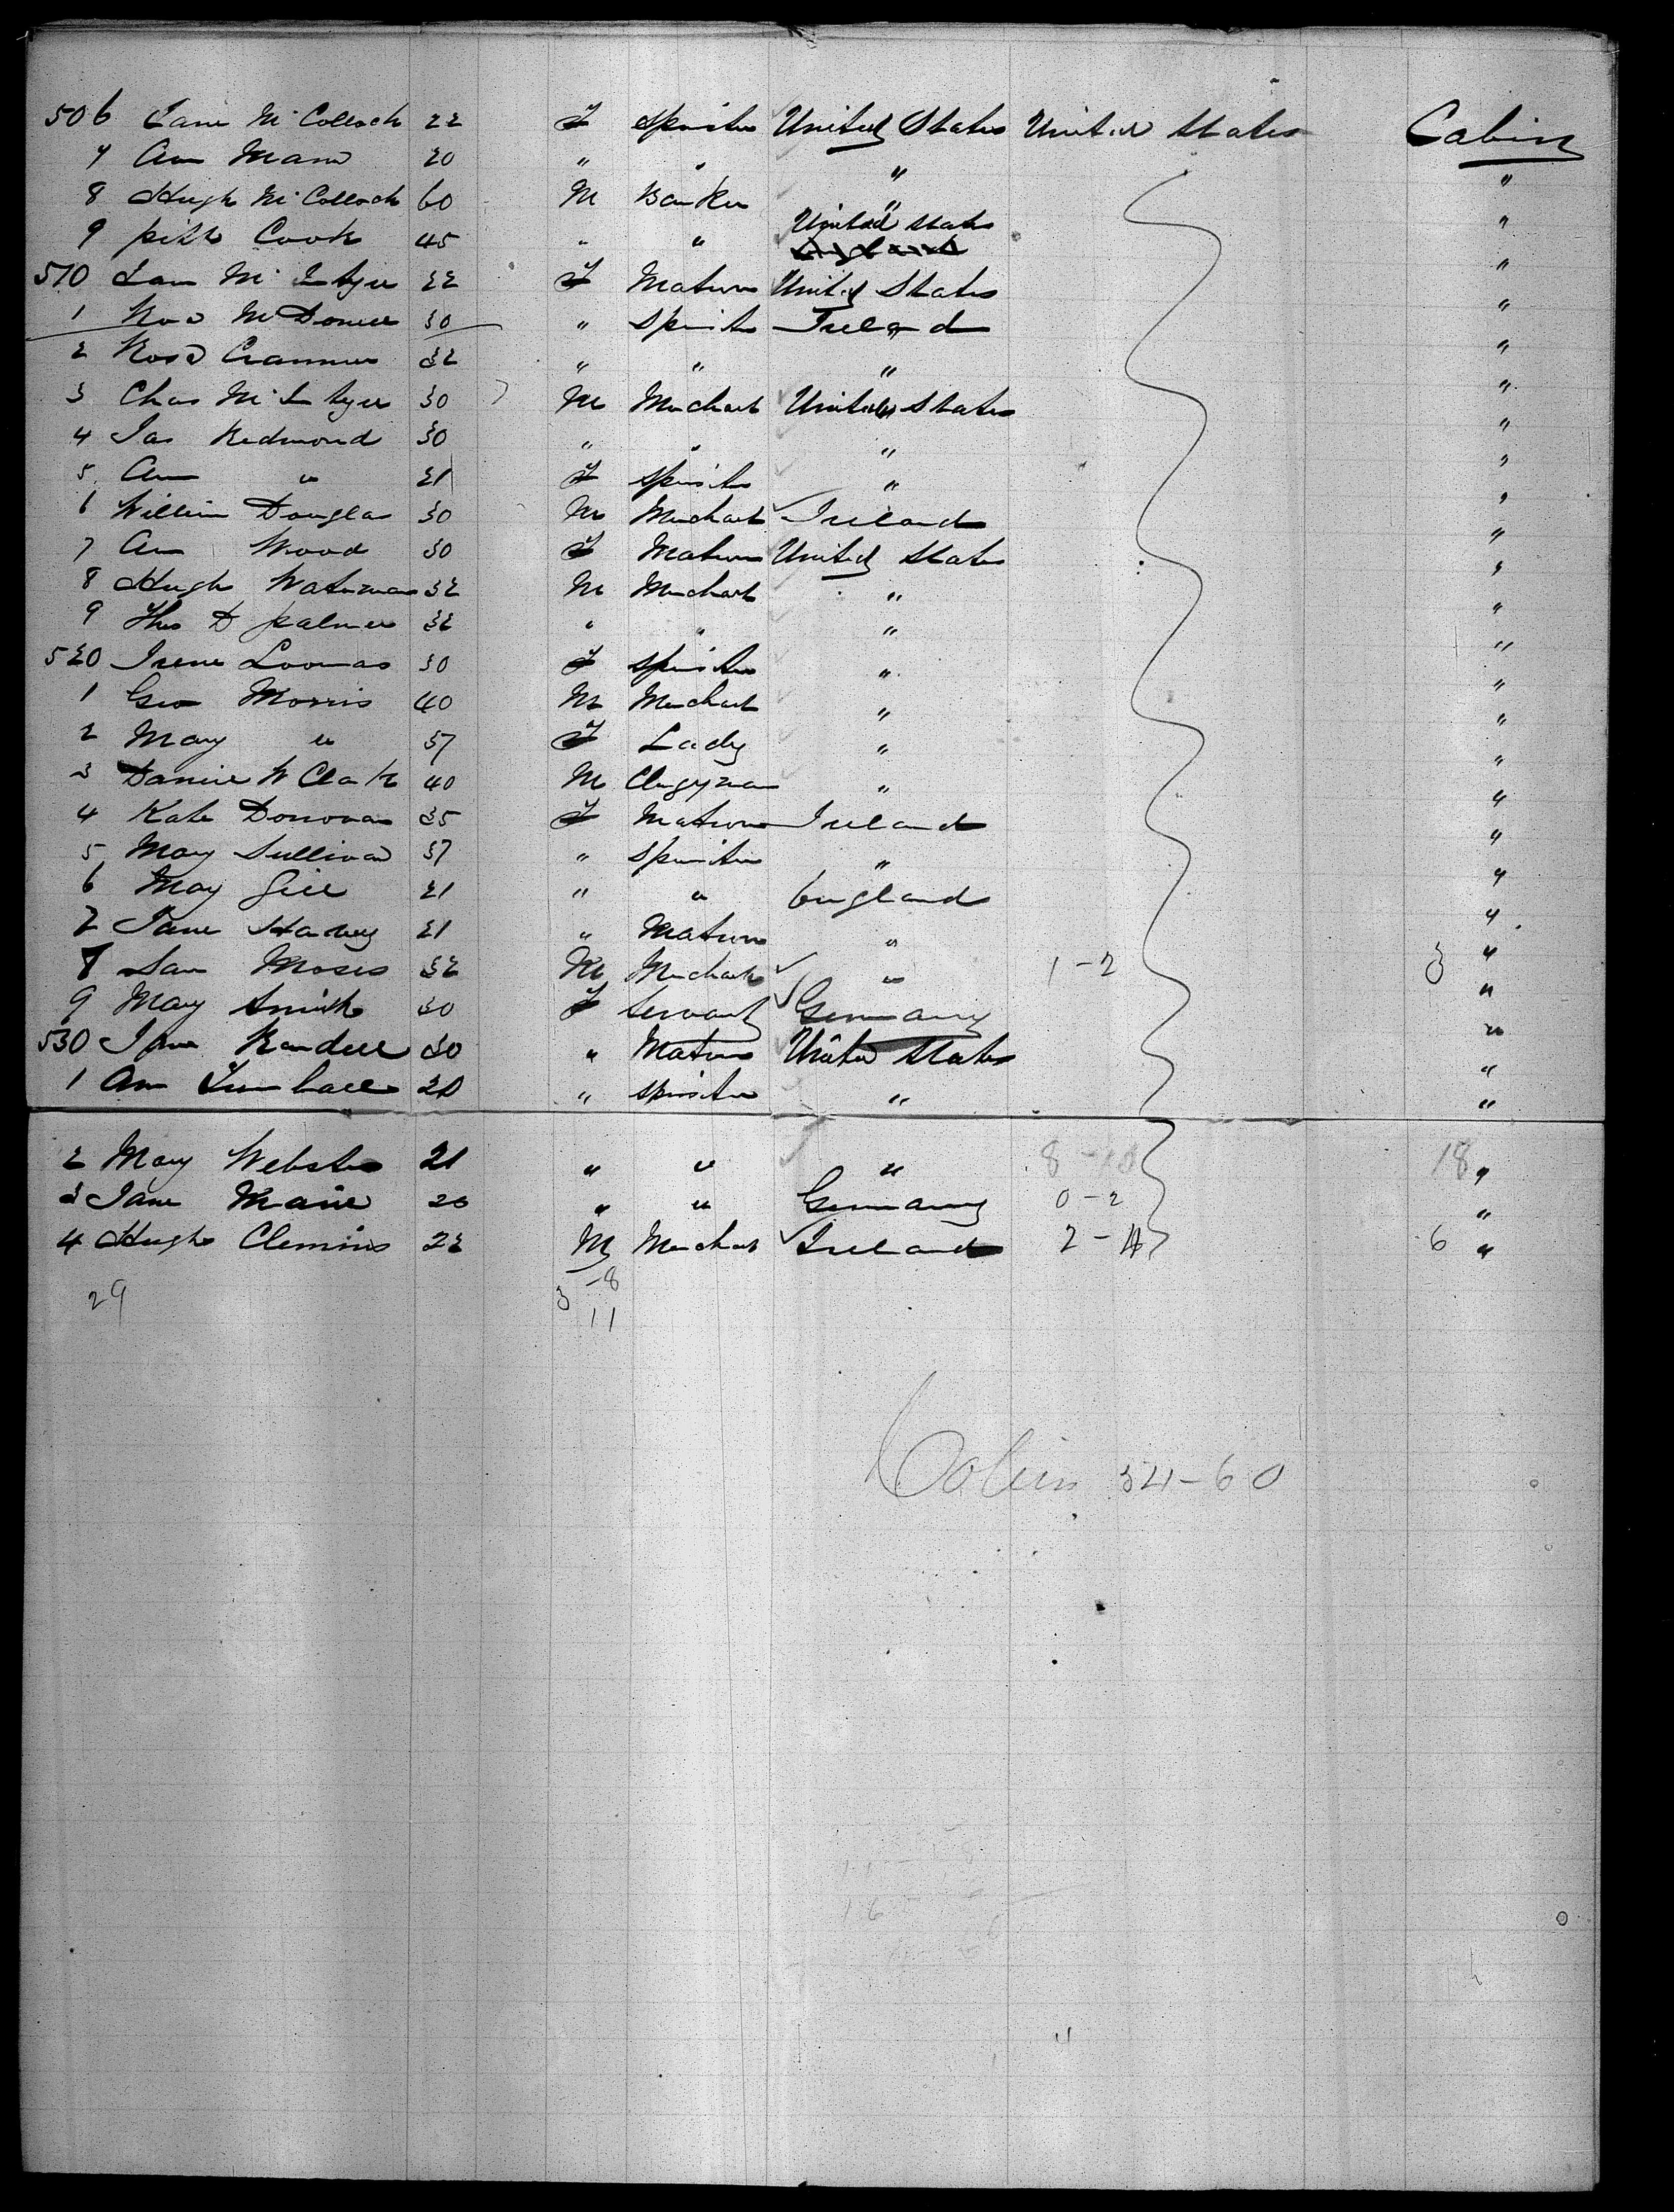 506 Jane McColloch 22 F Spinster United States United States Cabin
7 Ann Mann 20 " " " "
8 Hugh McColloch 60 M Banker " "
9 Cook 45 " " United States "
510 McIntyre 22 F Matron United States "
1 Rose McDonell 30 " Spinster Ireland "
2 Rose 32 " " " "
3 Chas McIntyre 30 M Merchant United States "
4 Jas Redmond 30 " " " "
5 Ann " 21 F Spinster " "
6 William Douglas 30 M Merchant Ireland "
7 Ann Wood 30 F Matron United States "
8 Hugh Waterman 32 M Merchant " "
9 Thos D Palmer 32 " " " "
520 Irene Loomas 30 F Spinster " "
1 Geo Morris 40 M Merchant " "
2 Mary " 37 F Lady " "
3 Daniel W Clark 40 M Clergyman " "
4 Kate Donovan 35 F Matron Ireland "
5 Mary Sullivan 37 " Spinster " "
6 May Gill 21 " " England "
7 Jane Harvey 21 " Matron " "
8 Sam Moses 32 M Merchant " 1-2 3 "
9 May Smith 30 F Servant Germany "
530 Jane Randell 30 " Matron United States "
1 Ann 20 " Spinster " "
2 Mary Webster 21 " " " 8-10 18 "
3 Jane Marie 20 " " Germany 0-2 "
4 Hugh Clemins 22 M Merchant Ireland 2-4 6 "
29 3-8
11
Cabin 34-60